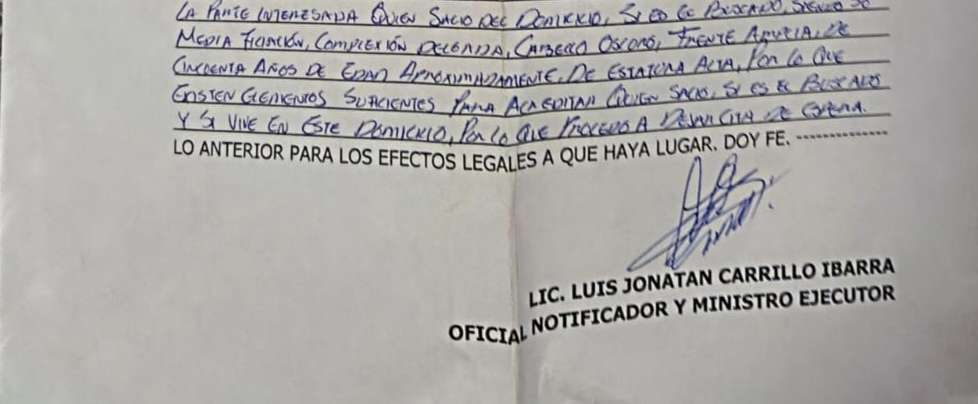 LA PARTE INTERESADA QUIEN SALIO DEL DOMICILIO, SI ES EL BUSCADO, SIENDO SU
MEDIA FILIACIÓN, COMPLEXIÓN DELGADA, CABELLO OSCURO, FRENTE AMPLIA, DE
CINCUENTA AÑOS DE EDAD APROXIMADAMENTE, DE ESTATURA ALTA, POR LO QUE
EXISTEN ELEMENTOS SUFICIENTES PARA ACREDITAR QUIEN SALIO, SI ES EL BUSCADO
Y SI VIVE EN ESTE DOMICILIO, POR LO QUE PROCEDO A DEJAR CITA DE ESPERA.
LO ANTERIOR PARA LOS EFECTOS LEGALES A QUE HAYA LUGAR. DOY FE. --------------
LIC. LUIS JONATAN CARRILLO IBARRA
OFICIAL NOTIFICADOR Y MINISTRO EJECUTOR